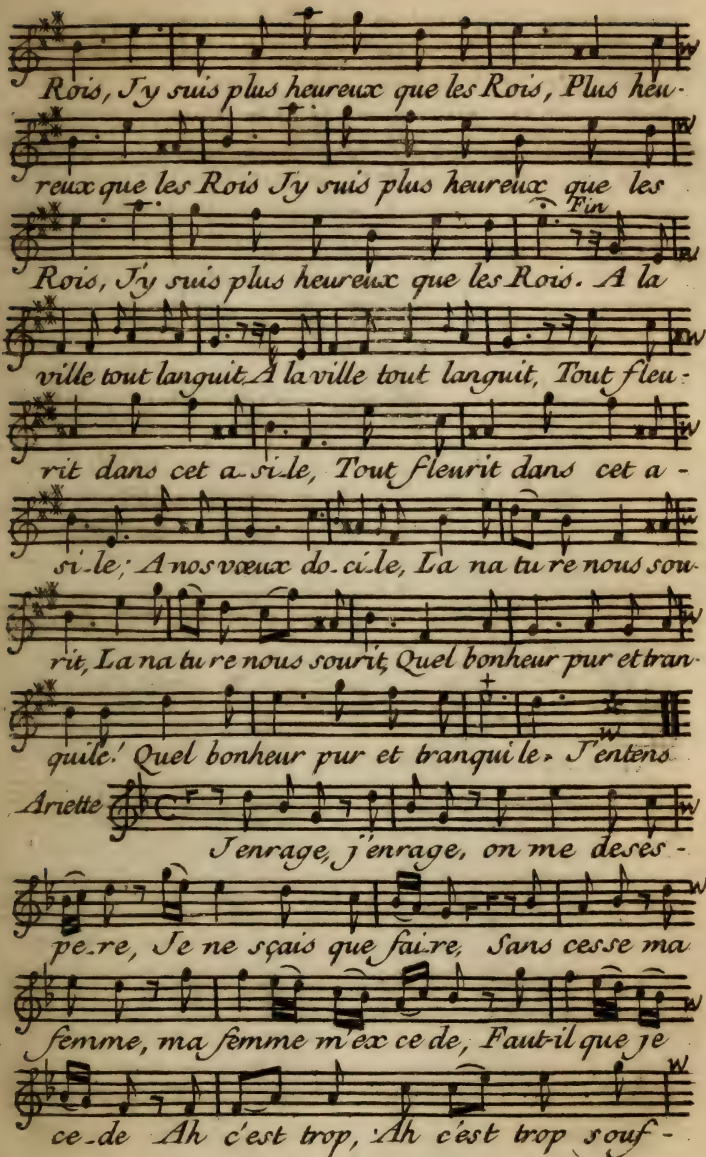 Rois, J'y suis plus heureux que les Rois, Plus heu-
reux que les Rois J'y suis plus heureux que les
Fin
Rois, J'y suis plus heureux que les Rois. A la
ville tout languit, A la ville tout languit, Tout fleu-
rit dans cet a-si-le, Tout fleurit dans cet a-
si-le; A nos vœux do-ci-le, La na tu re nous sou-
rit, La na tu re nous sourit, Quel bonheur pur et tran-
quile! Quel bonheur pur et tranquile. J'entens
Ariette
J'enrage, j'enrage, on me deses-
pe-re, Je ne sçais que fai-re, Sans cesse ma
femme, ma femme m'ex ce de, Faut-il que je
ce-de Ah c'est trop, Ah c'est trop souf-